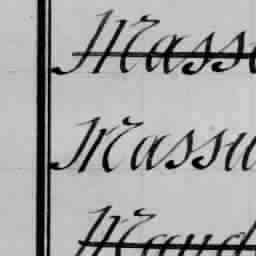 Masse
Massu
Maud